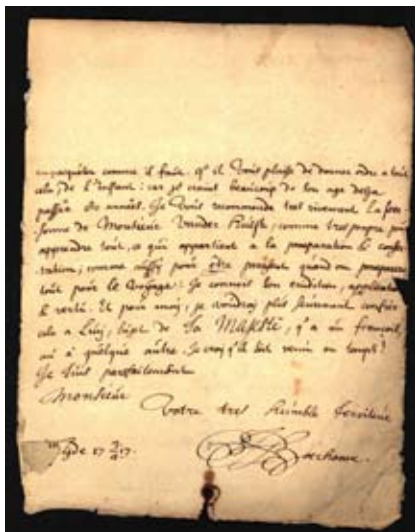 empaqueter comme il faut. qu'il Vous plaise de donner ordre a tout
cela, de l'instant: car je crains beaucoup de son age desja
passée des années. Je Vous recommende tres vivement La per-
sonne de Monsieur Vander Hulst, comme tres propre pour
apprendre tout, ce qui appartient a la preparation & conser-
vation; comme aussy pour être présent quand on preparera
tout pour le voyage. Je connois son erudition, application
& vertu. Et pour moy, je voudrai plus seurement confier
cela a Luy, sujet de Sa MAJESTÉ, q'a un françois,
ou a quelque autre. Je croy q'il soit venu en temps!
Je Suis parfaitement
Monsieur
Votre tres humble Serviteur
17